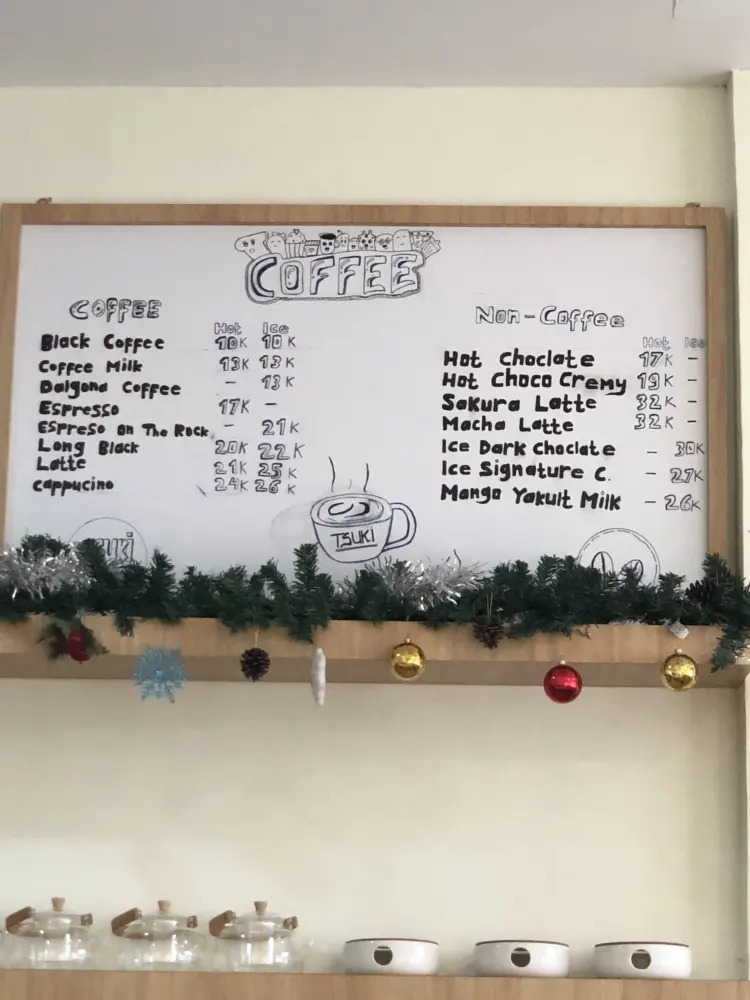 COFFEE
COFFEE
Hot Ice
Black Coffee 10K 10K
Coffee Milk 13K 13K
Dalgona Coffee - 13K
Espresso 17K -
Espreso On The Rock - 21K
Long Black 20K 22K
Latte 21K 25K
Cappucino 24K 26K
Non-Coffee
Hot Ice
Hot Choclate 17K -
Hot Choco Cremy 19K -
Sakura Latte 32K -
Macha Latte 32K -
Ice Dark Choclate - 30K
Ice Signature C. - 27K
Manga Yakult Milk - 26K
TSUKI